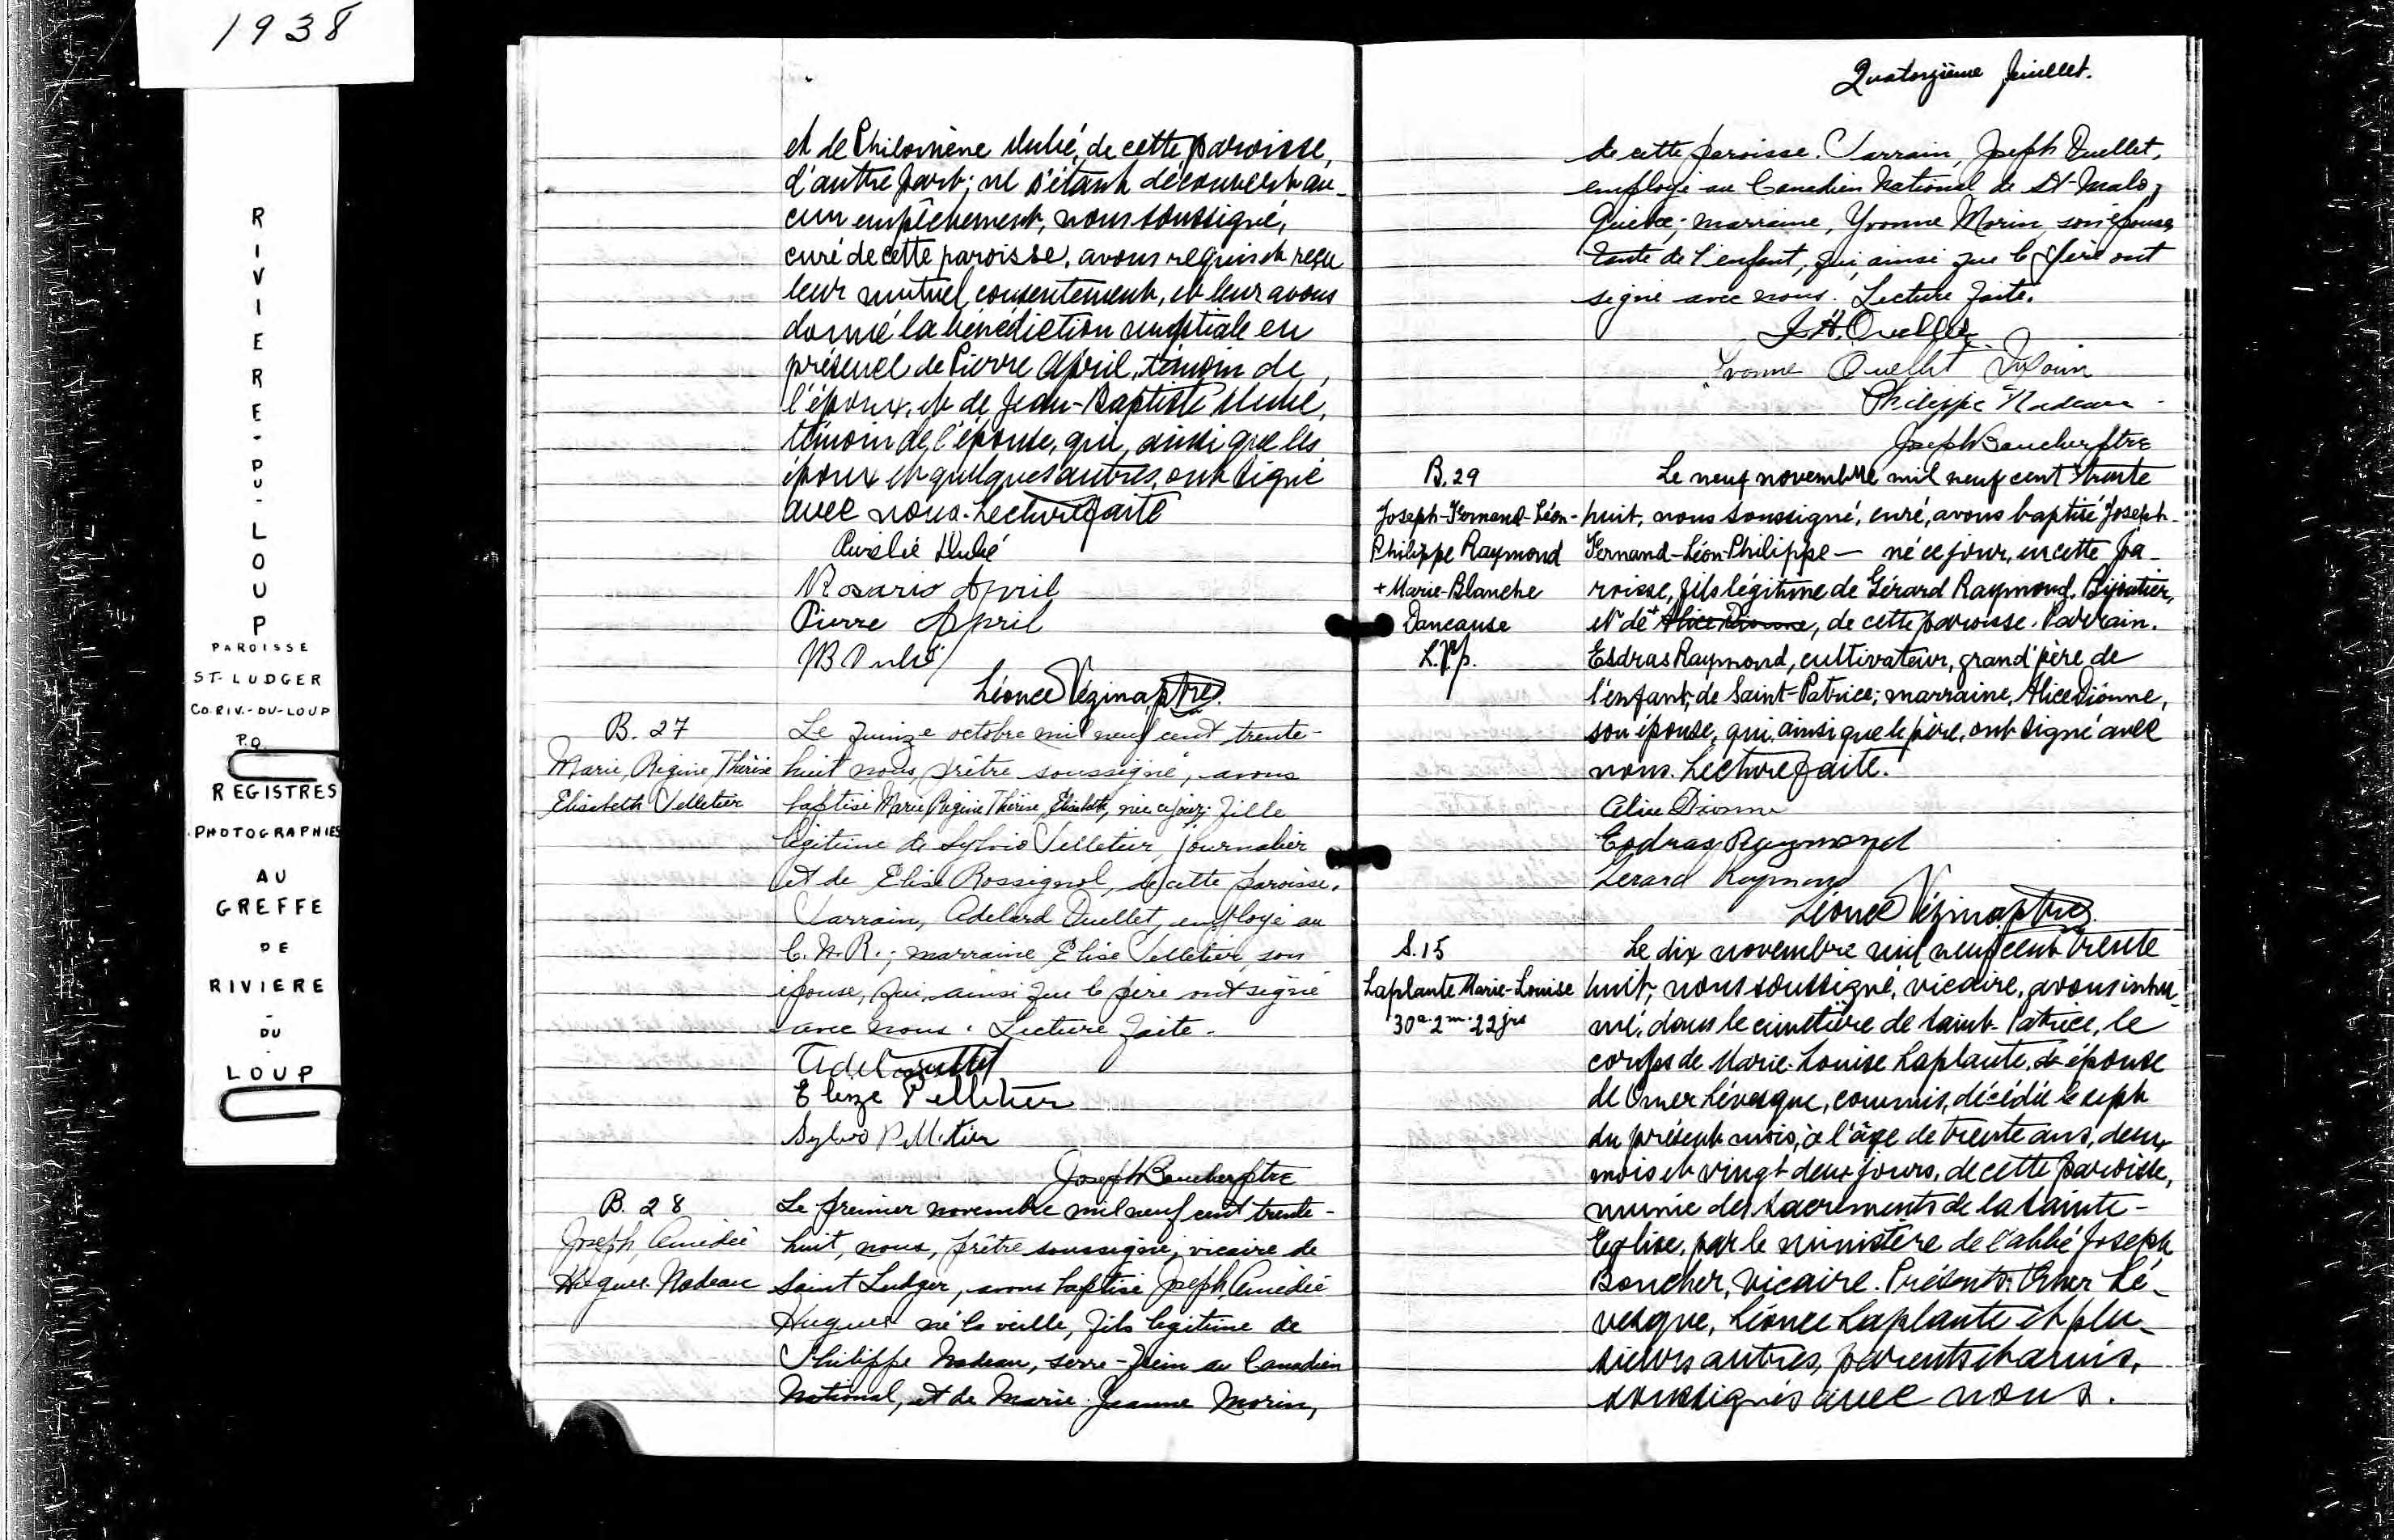 1938
RIVIERE-DU-LOUP
PAROISSE
ST-LUDGER
CO. RIV.-DU-LOUP
P.Q.
REGISTRES
PHOTOGRAPHIES
AU
GREFFE
DE
RIVIERE
-
DU
-
LOUP
et de Philomène Dubé, de cette paroisse,
d'autre part; ne s'étant découvert au-
cun empêchement, nous soussigné,
curé de cette paroisse, avons requis et reçu
leur mutuel consentement, et leur avons
donné la bénédiction nuptiale en
présence de Pierre April, témoin de
l'époux, et de Jean-Baptiste Dubé,
témoin de l'épouse, qui, ainsi que les
époux et quelques autres, ont signé
avec nous. Lecture faite
Aurélie Dubé
Rosario April
Pierre April
JB Dubé
Léonce Vézina, ptre.
B. 27
Marie, Régine, Thérèse
Elisabeth Pelletier
Le quinze octobre mil neuf cent trente-
huit nous, prêtre soussigné, avons
baptisé Marie Régine Thérèse Elisabeth, née ce jour, fille
légitime de Sylvio Pelletier, journalier
et de Elise Rossignol, de cette paroisse.
Parrain, Adelard Ouellet, employé au
C.N.R.; marraine Elise Pelletier, son
épouse, qui, ainsi que le père ont signé
avec nous. Lecture faite.
Adel Ouellet
Elize Pelletier
Sylvio Pelletier
Joseph Boucher ptre
B. 28
Joseph, Amédée
Hugues Nadeau
Le premier novembre mil neuf cent trente-
huit, nous, prêtre soussigné, vicaire de
Saint Ludger, avons baptisé Joseph Amédée
Hugues né la veille, fils légitime de
Philippe Nadeau, serre-frein au Canadien
National, et de Marie-Jeanne Morin,
Quatorzième feuillet.
de cette paroisse. Parrain, Joseph Ouellet,
employé au Canadien National de St-Malo,
Québec; marraine, Yvonne Morin, son épouse,
tante de l'enfant, qui, ainsi que le père ont
signé avec nous. Lecture faite.
J.H. Ouellet
Yvonne Ouellet Morin
Philippe Nadeau
Joseph Boucher ptre
B. 29
Joseph-Fernand-Léon-
Philippe Raymond
+ Marie-Blanche
Dancause
L.V. p.
Le neuf novembre mil neuf cent trente
huit, nous soussigné, curé, avons baptisé Joseph-
Fernand-Léon-Philippe — né ce jour, en cette pa-
roisse, fils légitime de Gérard Raymond, Bijoutier,
et de + Alice Dionne, de cette paroisse. Parrain.
Esdras Raymond, cultivateur, grand'père de
l'enfant, de Saint-Patrice; marraine, Alice Dionne,
son épouse, qui, ainsi que le père, ont signé avec
nous. Lecture faite.
Alice Dionne
Esdras Raymond
Gerard Raymond
Léonce Vézina, ptre.
S. 15
Laplante Marie-Louise
30 a. 2 m. 22 jrs
Le dix novembre mil neuf cent trente
huit, nous soussigné, vicaire, avons inhu-
mé, dans le cimetière de Saint-Patrice, le
corps de Marie-Louise Laplante, de épouse
de Omer Lévesque, commis, décédée le sept
du présent mois, à l'âge de trente ans, deux
mois et vingt deux jours, de cette paroisse,
munie des sacrements de la Sainte-
Eglise, par le ministère de l'abbé Joseph
Boucher, vicaire. Présents: Omer Lé-
vesque, Léonce Laplante et plu-
sieurs autres, parents et amis,
soussignés avec nous.